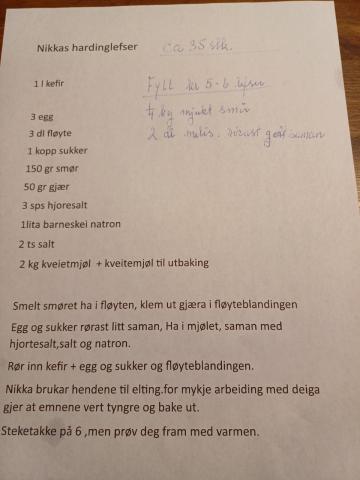 Nikkas hardinglefser ca 35 stk.
1 l kefir
Fyll til 5-6 lefser
3 egg
kg mjukt smør
3 dl fløyte
2 dl melis. rørast godt saman
1 kopp sukker
150 gr smør
50 gr gjær
3 sps hjoresalt
1lita barneskei natron
2 ts salt
2 kg kveietmjøl + kveitemjøl til utbaking
Smelt smøret ha i fløyten, klem ut gjæra i fløyteblandingen
Egg og sukker rørast litt saman, Ha i mjølet, saman med
hjortesalt,salt og natron.
Rør inn kefir + egg og sukker og fløyteblandingen.
Nikka brukar hendene til elting.for mykje arbeiding med deiga
gjer at emnene vert tyngre og bake ut.
Steketakke på 6 ,men prøv deg fram med varmen.